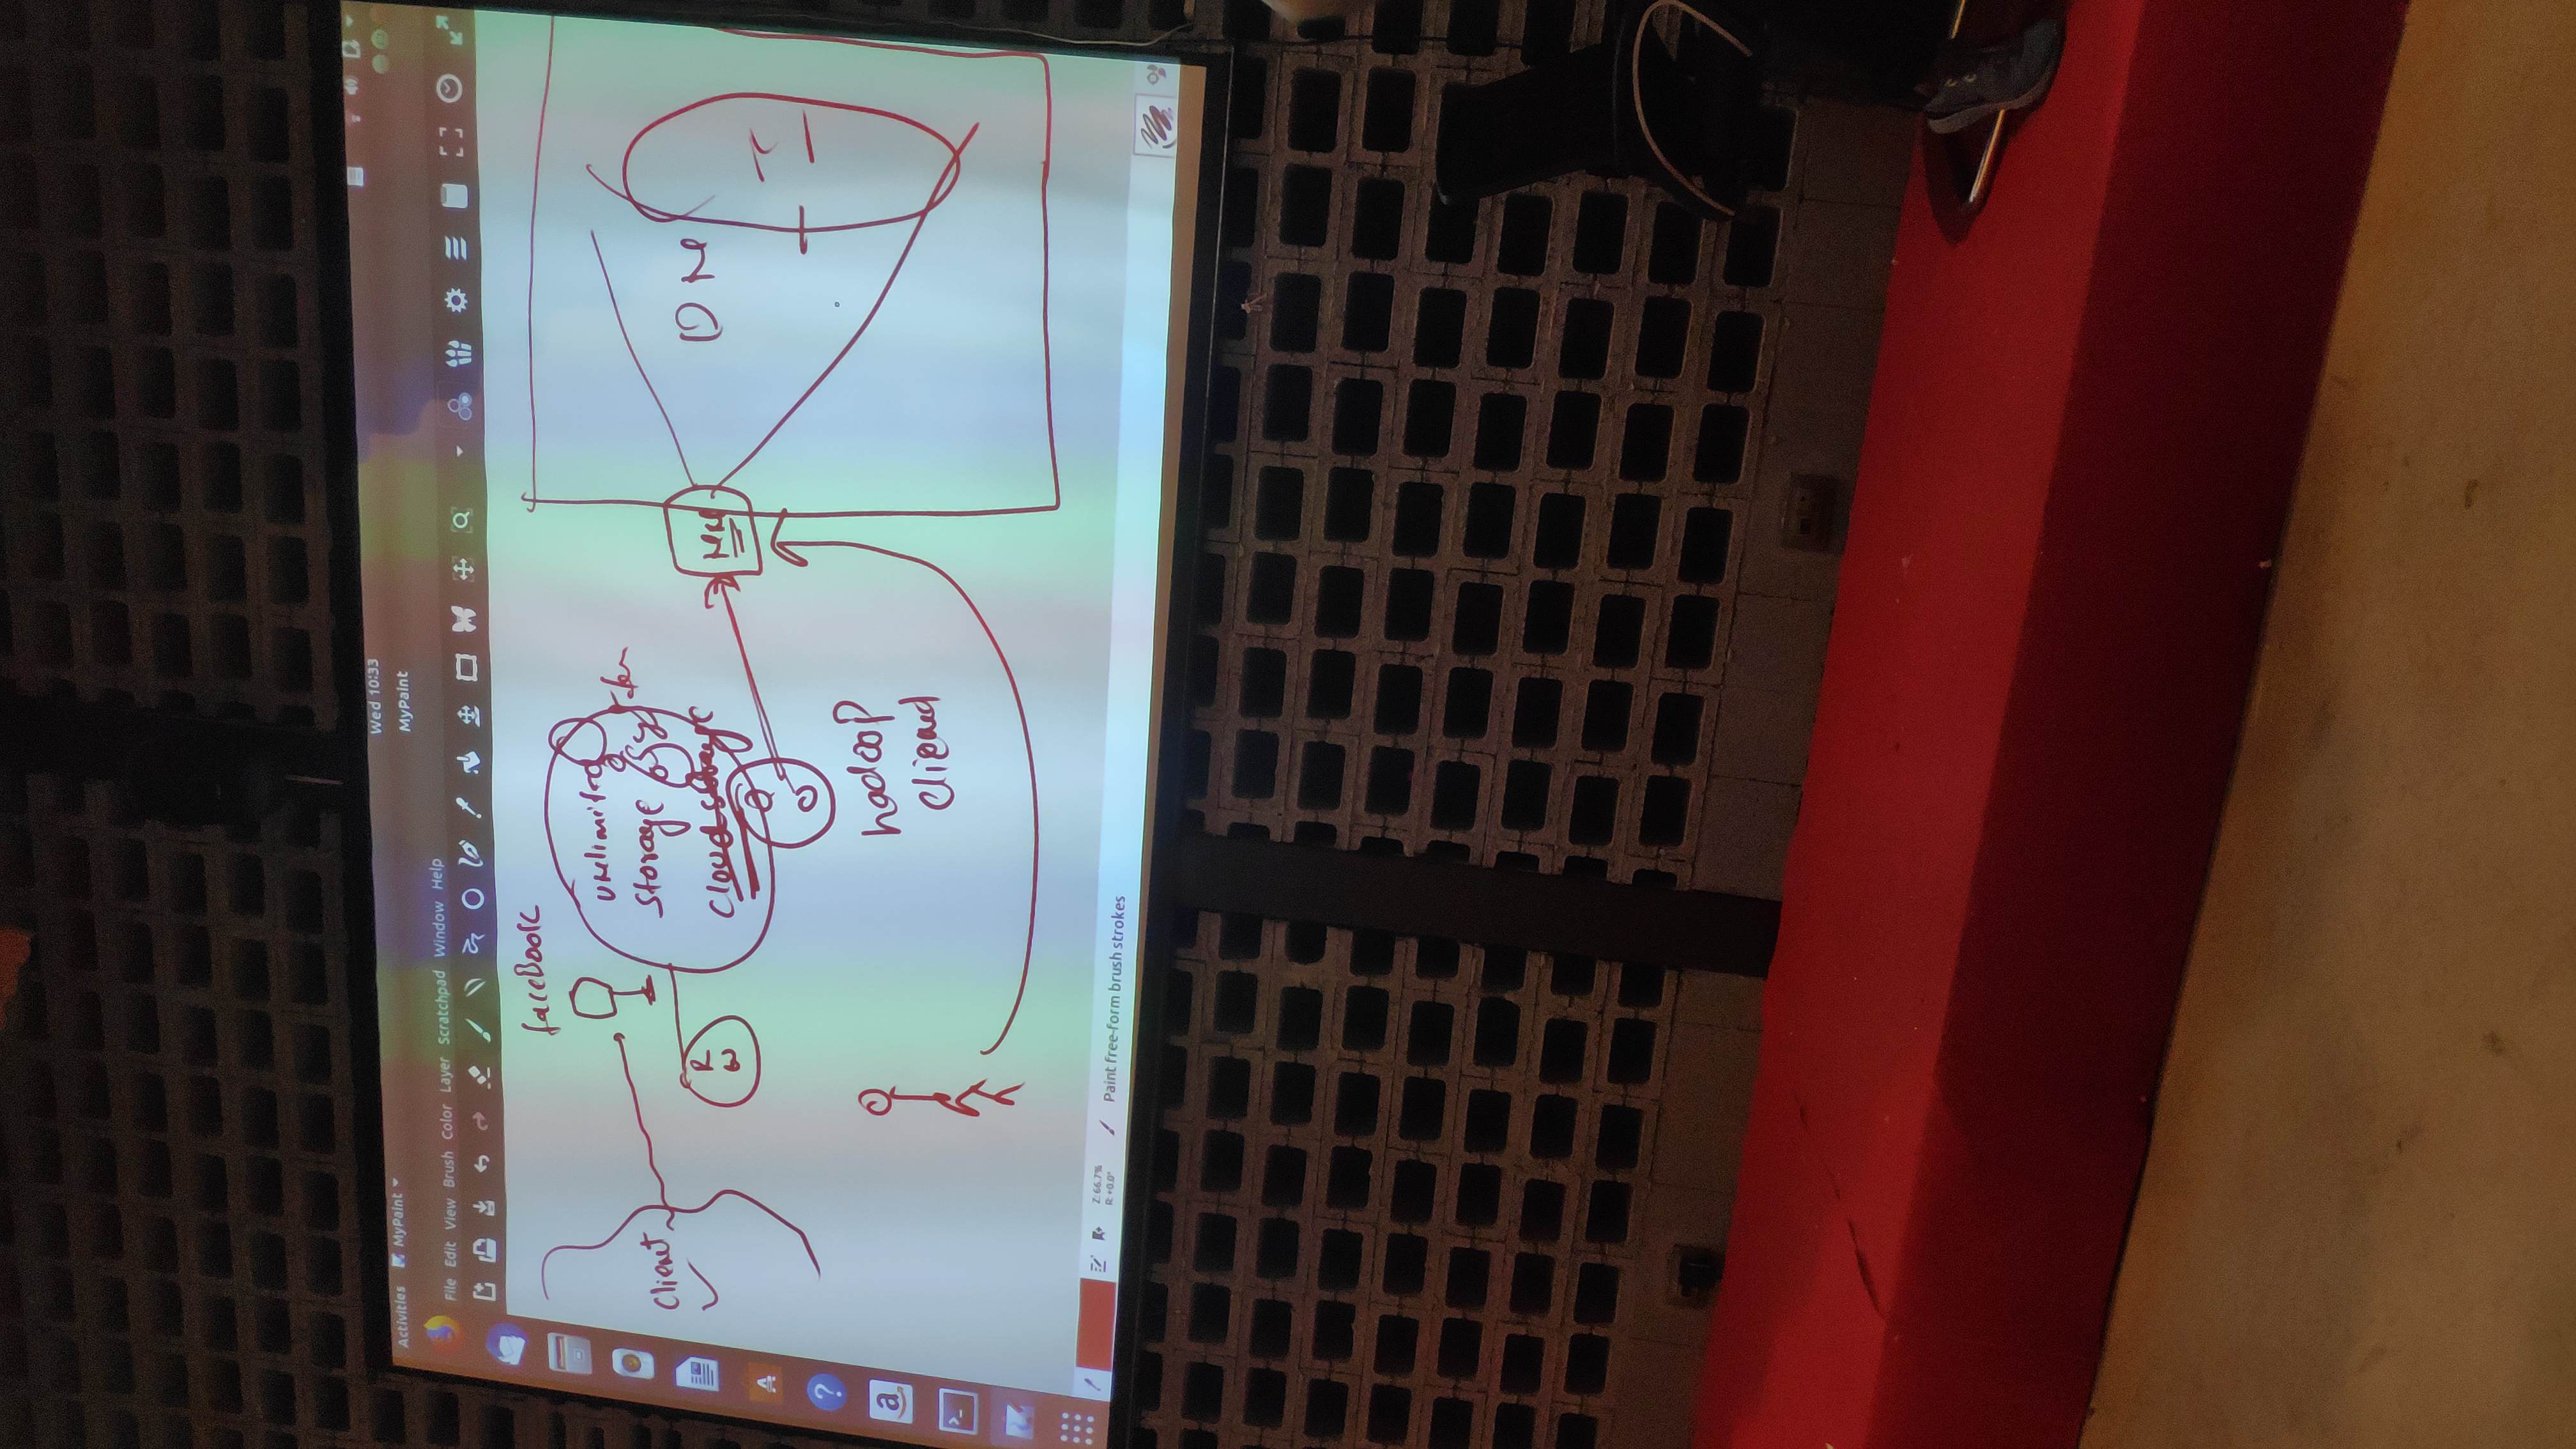 Wed 10:33
Activities MyPaint
MyPaint
File Edit View Brush Color Layer Scratchpad Window Help
faceBook
Client
unlimited
Storage System
Cloud storage
R
W
NN
DN
hadoop
Z: 66.7%
R: +0.0°
Paint free-form brush strokes